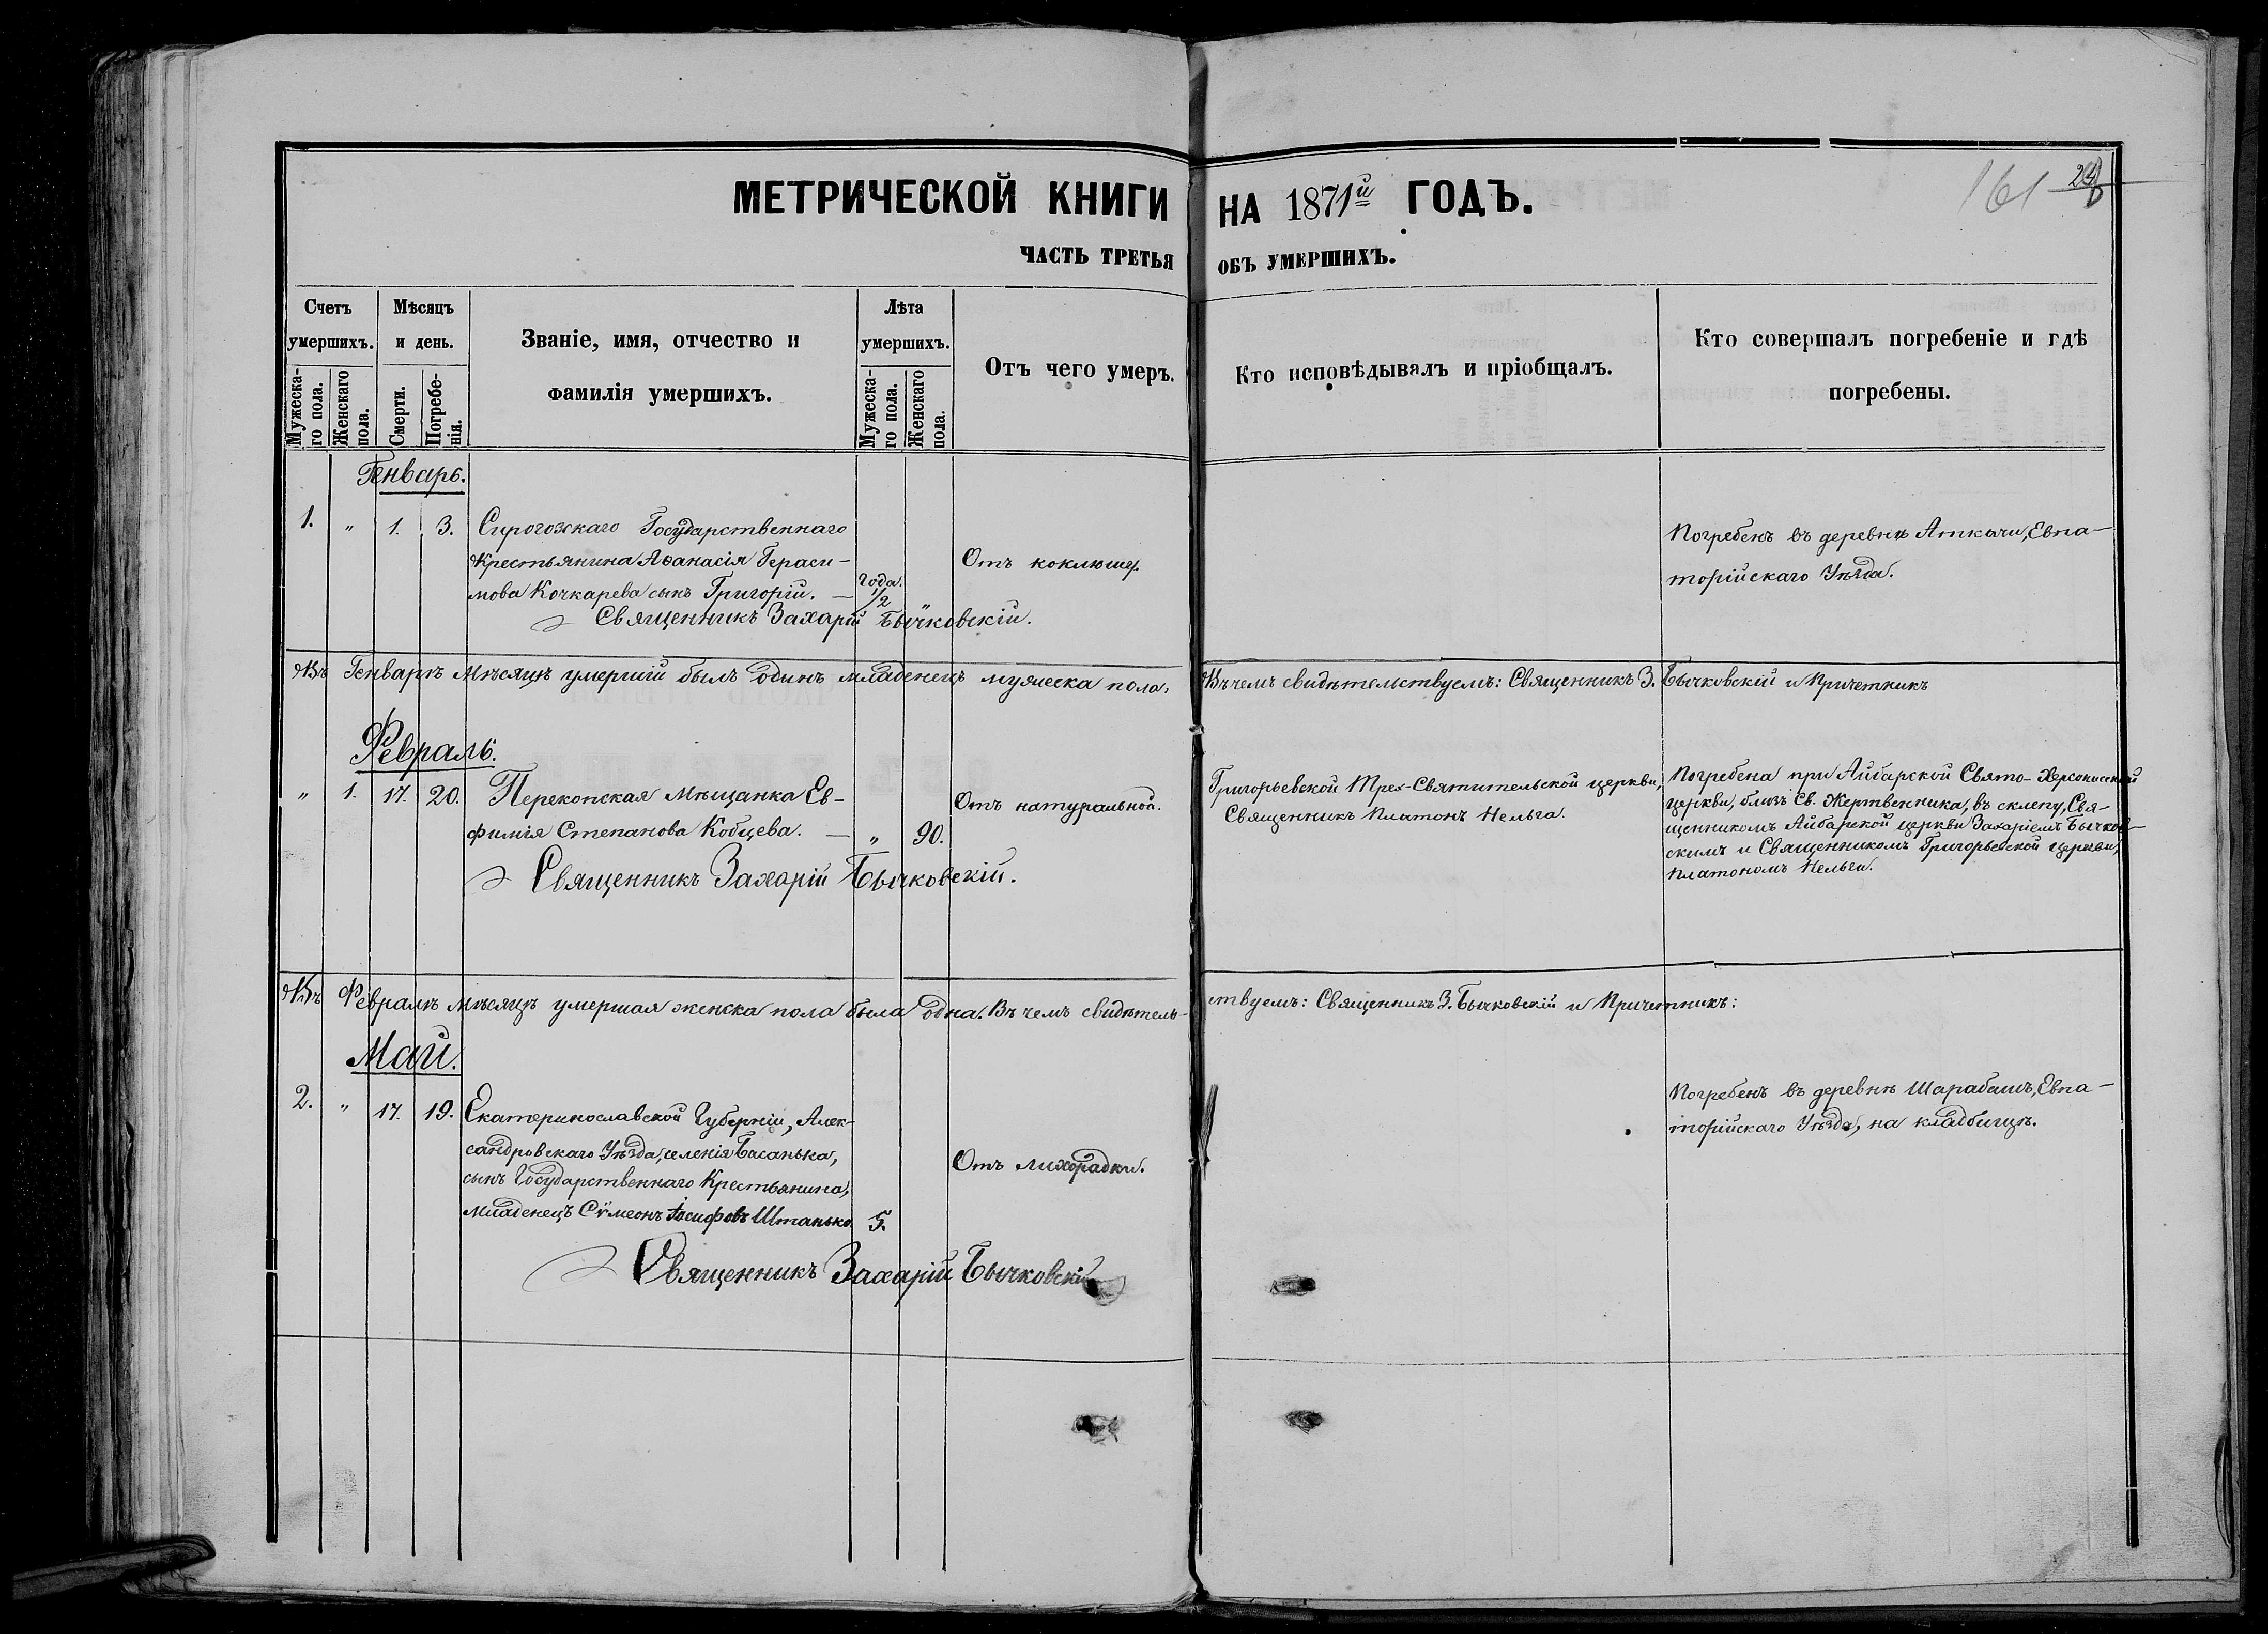 МЕТРИЧЕСКОЙ КНИГИ НА 1871й ГОДЪ.
161
ЧАСТЬ ТРЕТЬЯ ОБЪ УМЕРШИХЪ.
Счетъ умершихъ.
Мужеска-го пола.
Женскаго пола.
Мѣсяцъ и день.
Смерти.
Погребе-нія.
Званіе, имя, отчество и
фамилія умершихъ.
Лѣта умершихъ.
Мужеска-го пола.
Женскаго пола.
Отъ чего умеръ.
Кто исповѣдывалъ и пріобщалъ.
Кто совершалъ погребеніе и гдѣ
погребены.
Генварь.
1. " 1. 3. Сирогозкаго Государственнаго
Крестьянина Аѳанасія Гераси-
мова Кочкарева сынъ Григорій. —
года.
1/2 "
Отъ коклюша.
Погребенъ въ деревнѣ Аткачи, Евпа-
торійскаго Уѣзда.
Священникъ Захарій Бычковскій.
Въ Генварѣ Мѣсяцѣ умершій былъ одинъ младенецъ мужеска пола, Въ чемъ свидѣтельствуемъ: Священникъ З. Бычковскій и Причетникъ
Февраль.
" 1. 17. 20. Перекопская Мѣщанка Ев-
фимія Степанова Кобцева. — " 90.
Отъ натуральной.
Григорьевской Трех-Святительской церкви,
Священникъ Платонъ Нельга.
Погребена при Айбарской Свято-Херсонисской
церкви, близъ Св. Жертвенника, въ склепу, Свя-
щенникомъ Айбарской церкви Захаріемъ Бычков-
скимъ и Священникомъ Григорьевской церкви,
Платономъ Нельги.
Священникъ Захарій Бычковскій.
Въ Февралѣ мѣсяцѣ умершая женска пола была одна. Въ чемъ свидѣтель-ствуемъ: Священникъ З. Бычковскій и Причетникъ:
Май.
2. " 17. 19. Екатеринославской Губерніи, Алек-
сандровскаго Уѣзда, селенія Басанька,
сынъ Государственнаго Крестьянина,
младенецъ Сѵмеонъ Іосифовъ Штанько 5.
Отъ лихорадки.
Погребенъ въ деревнѣ Шарабашъ, Евпа-
торійскаго Уѣзда, на кладбищѣ.
Священникъ Захарій Бычковскій